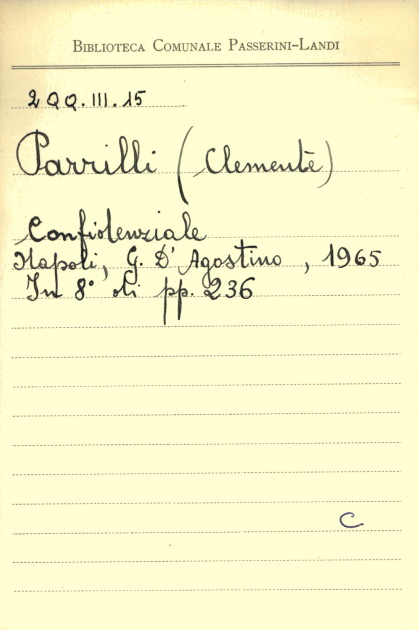 BIBLIOTECA COMUNALE PASSERINI-LANDI
2 QQ. III. 15
Parrilli (Clemente)
Confidenziale
Napoli, G. D'Agostino, 1965
In 8° di pp. 236
C